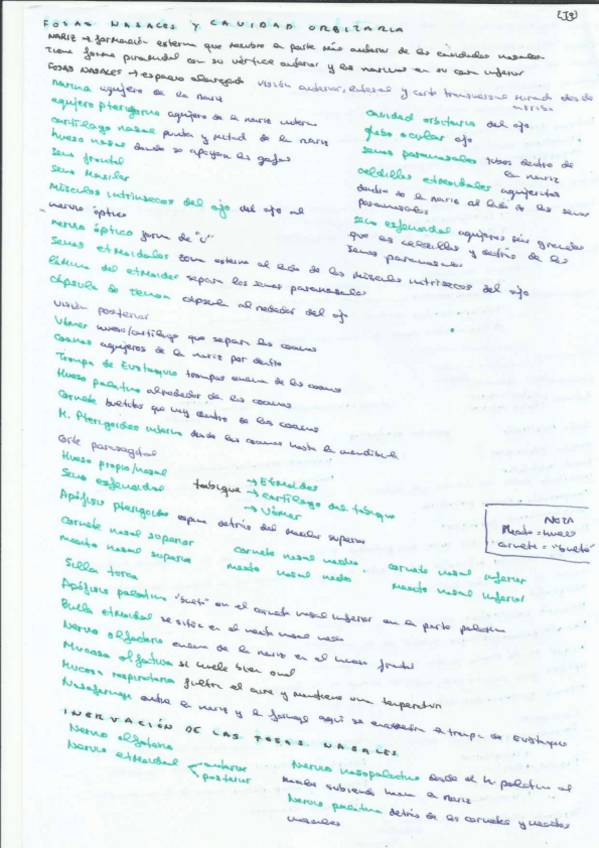 FOSAS NASALES Y CAVIDAD ORBITARIA
NARIZ → formación externa que recubre la parte más anterior de las cavidades nasales.
Tiene forma piramidal con su vértice anterior y las narinas en su cara inferior
FOSAS NASALES → espacio alargado
visión anterior, lateral y corte transversal mirado desde arriba
narina agujero de la nariz
agujero pterigomo agujero de la nariz interna
cartílago nasal punta y mitad de la nariz
hueso nasal donde se apoyan las gafas
Seno frontal
Seno maxilar
Músculos intrínsecos del ojo del ojo al
nervio óptico
nervio óptico forma de "U"
Senos etmoidales zona externa al lado de los músculos intrínsecos del ojo
lámina del etmoides separa los senos paranasales
cápsula de Tenon cápsula alrededor del ojo
cavidad orbitaria del ojo
globo ocular ojo
senos paranasales tubos dentro de
la nariz
celdillas etmoidales agujeritos
dentro de la nariz al lado de los senos
paranasales
seno esfenoidal agujeros más grandes
que las celdillas y detrás de los
senos paranasales
Visión posterior
Vómer hueso/cartílago que separa las coanas
Coanas agujeros de la nariz por dentro
Trompa de Eustaquio trompas encima de las coanas
Hueso palatino alrededor de las coanas
Cornete bultitos que hay dentro de las coanas
M. Pterigoideo interno desde las coanas hasta la mandíbula
Corte parasagital
Hueso propio/nasal
Seno esfenoidal
tabique → Etmoides
→ cartílago del tabique
→ Vómer
Apófisis pterigoides espina detrás del maxilar superior
Cornete nasal superior cornete nasal medio cornete nasal inferior
meato nasal superior meato nasal medio meato nasal inferior
NOTA
Meato = hueco
cornete = "bulto"
Silla turca
Apófisis palatina "bulto" en el cornete nasal inferior en la parte palatina
Bulla etmoidal se sitúa en el meato nasal medio
Nervio olfatorio encima de la nariz en el hueso frontal
Mucosa olfativa si huele bien o mal
Mucosa respiratoria filtra el aire y mantiene una temperatura
Nasofaringe entre la nariz y la faringe aquí se encuentra la trompa de Eustaquio
INERVACIÓN DE LAS FOSAS NASALES
Nervio olfatorio
Nervio etmoidal anterior
posterior
Nervio nasopalatino desde el h. palatino al
maxilar subiendo hacia la nariz
Nervio palatino detrás de los cornetes y meatos
nasales